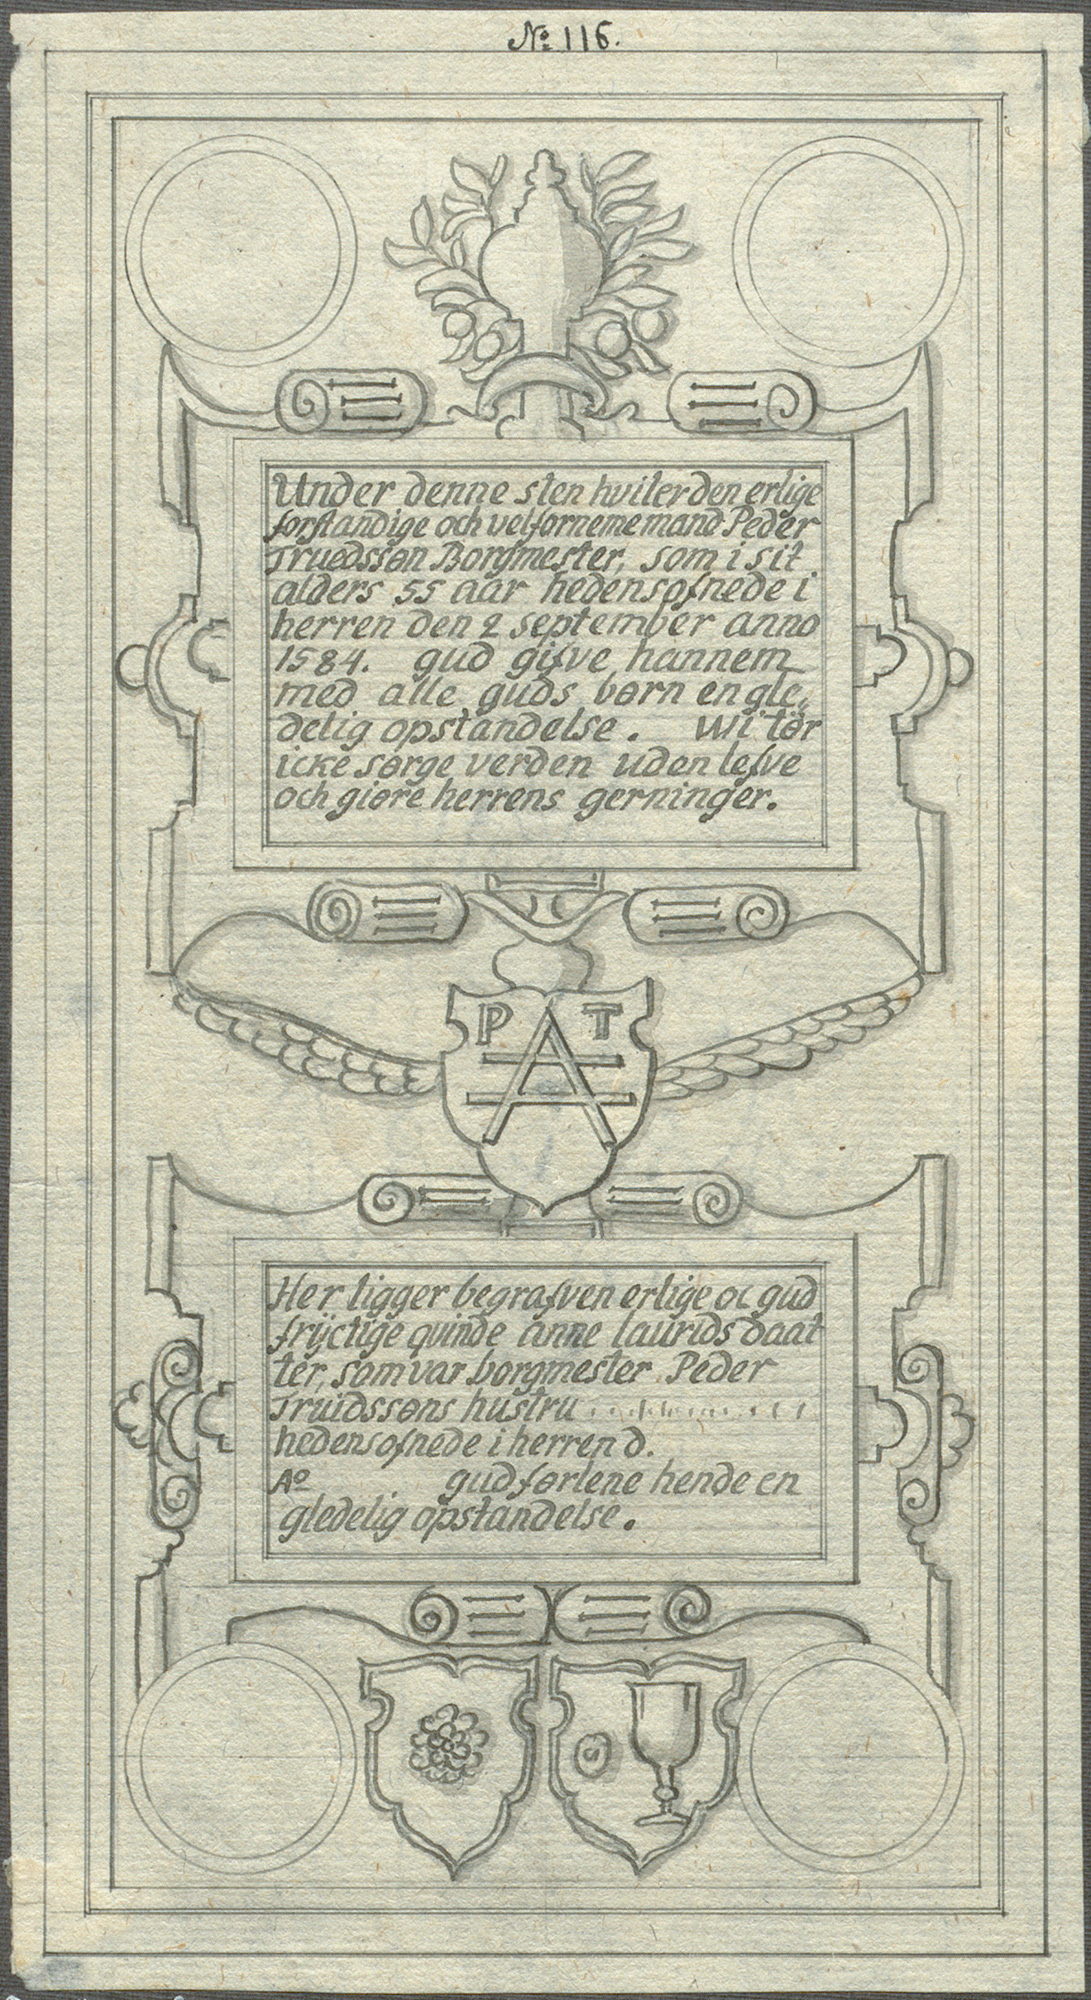 No 116.
Under denne sten hviler den erlige
forstandige och velforneme mand Peder
Truedssøn Borgmester, som i sit
alders 55 aar hedensofnede i
herren den 2 september anno
1584. gud gifve hannem
med alle guds børn en gle,,
delig opstandelse. Wi tør
icke sørge verden uden lefve
och giøre herrens gerninger.
P T
Her ligger begrafven erlige oc gud
frijctige quinde anne laurids daat
ter, som var borgmester Peder
Truidssøns hustru
hedensofnede i herren d.
Ao gud førlene hende en
gledelig opstandelse.